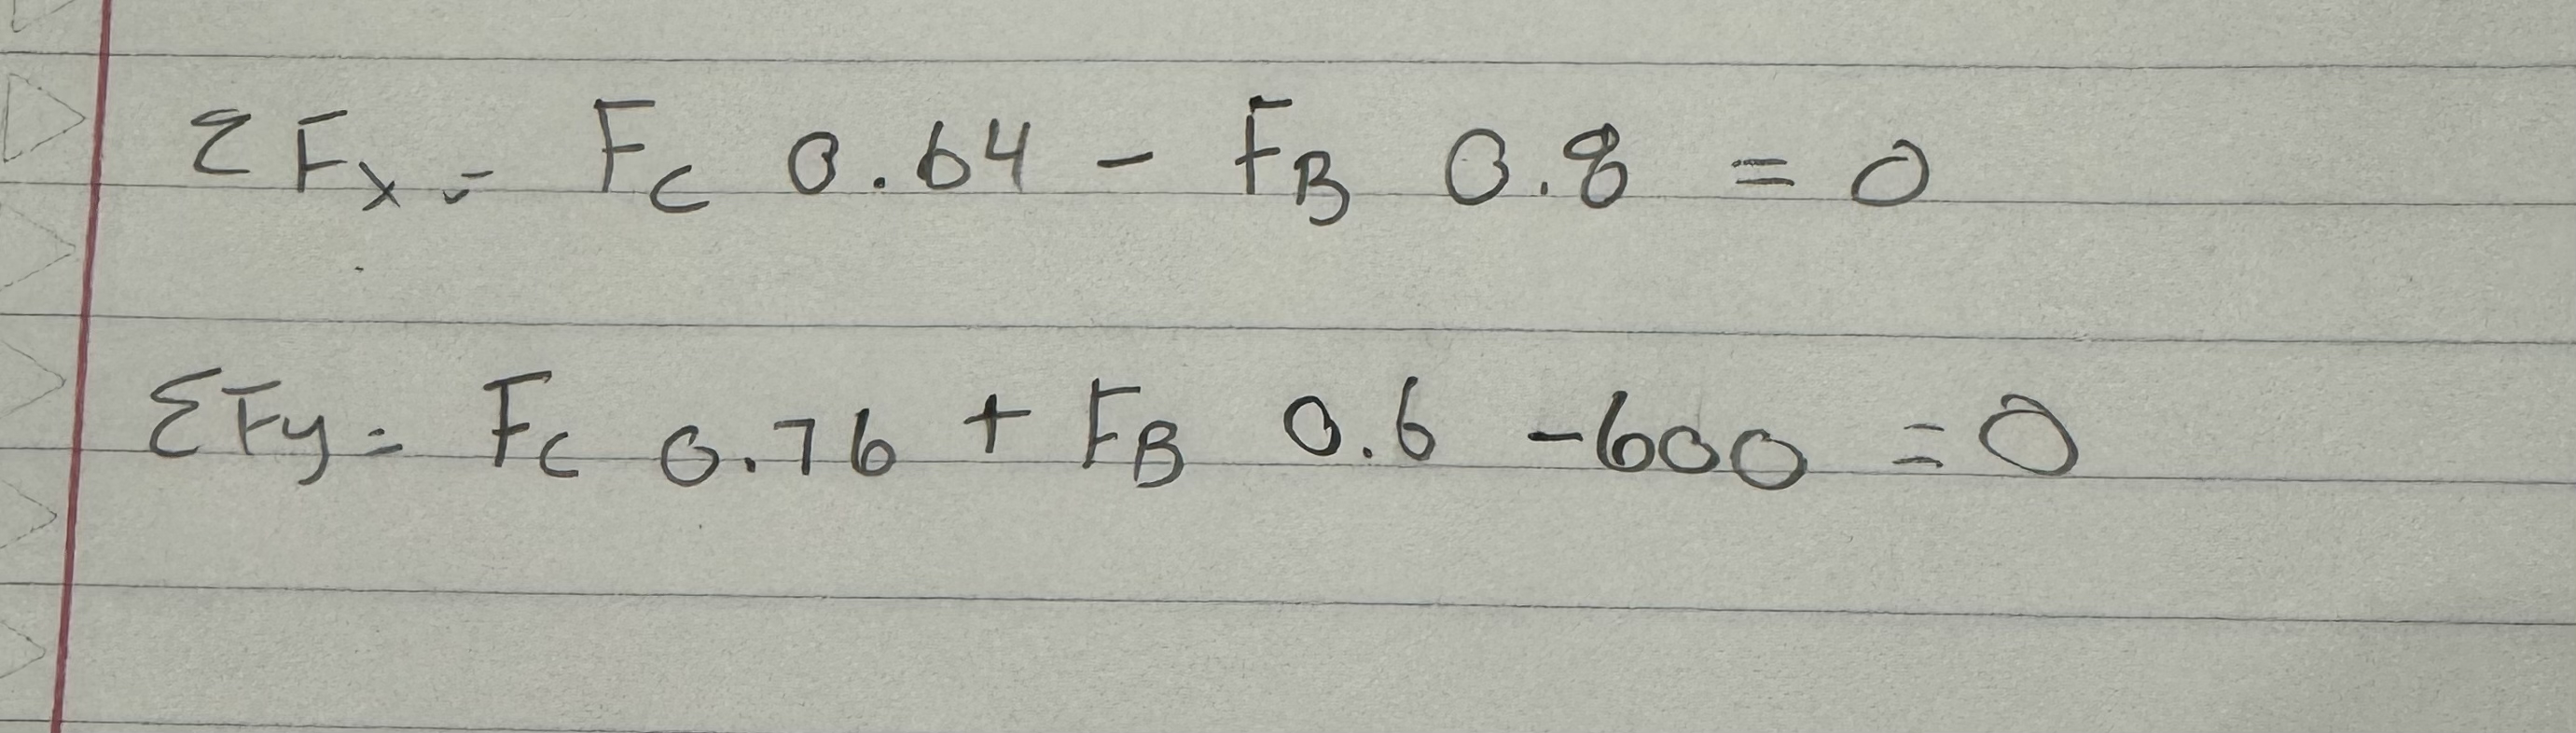 ΣFx = Fc 0.64 - FB 0.8 = 0
ΣFy = Fc 0.76 + FB 0.6 - 600 = 0